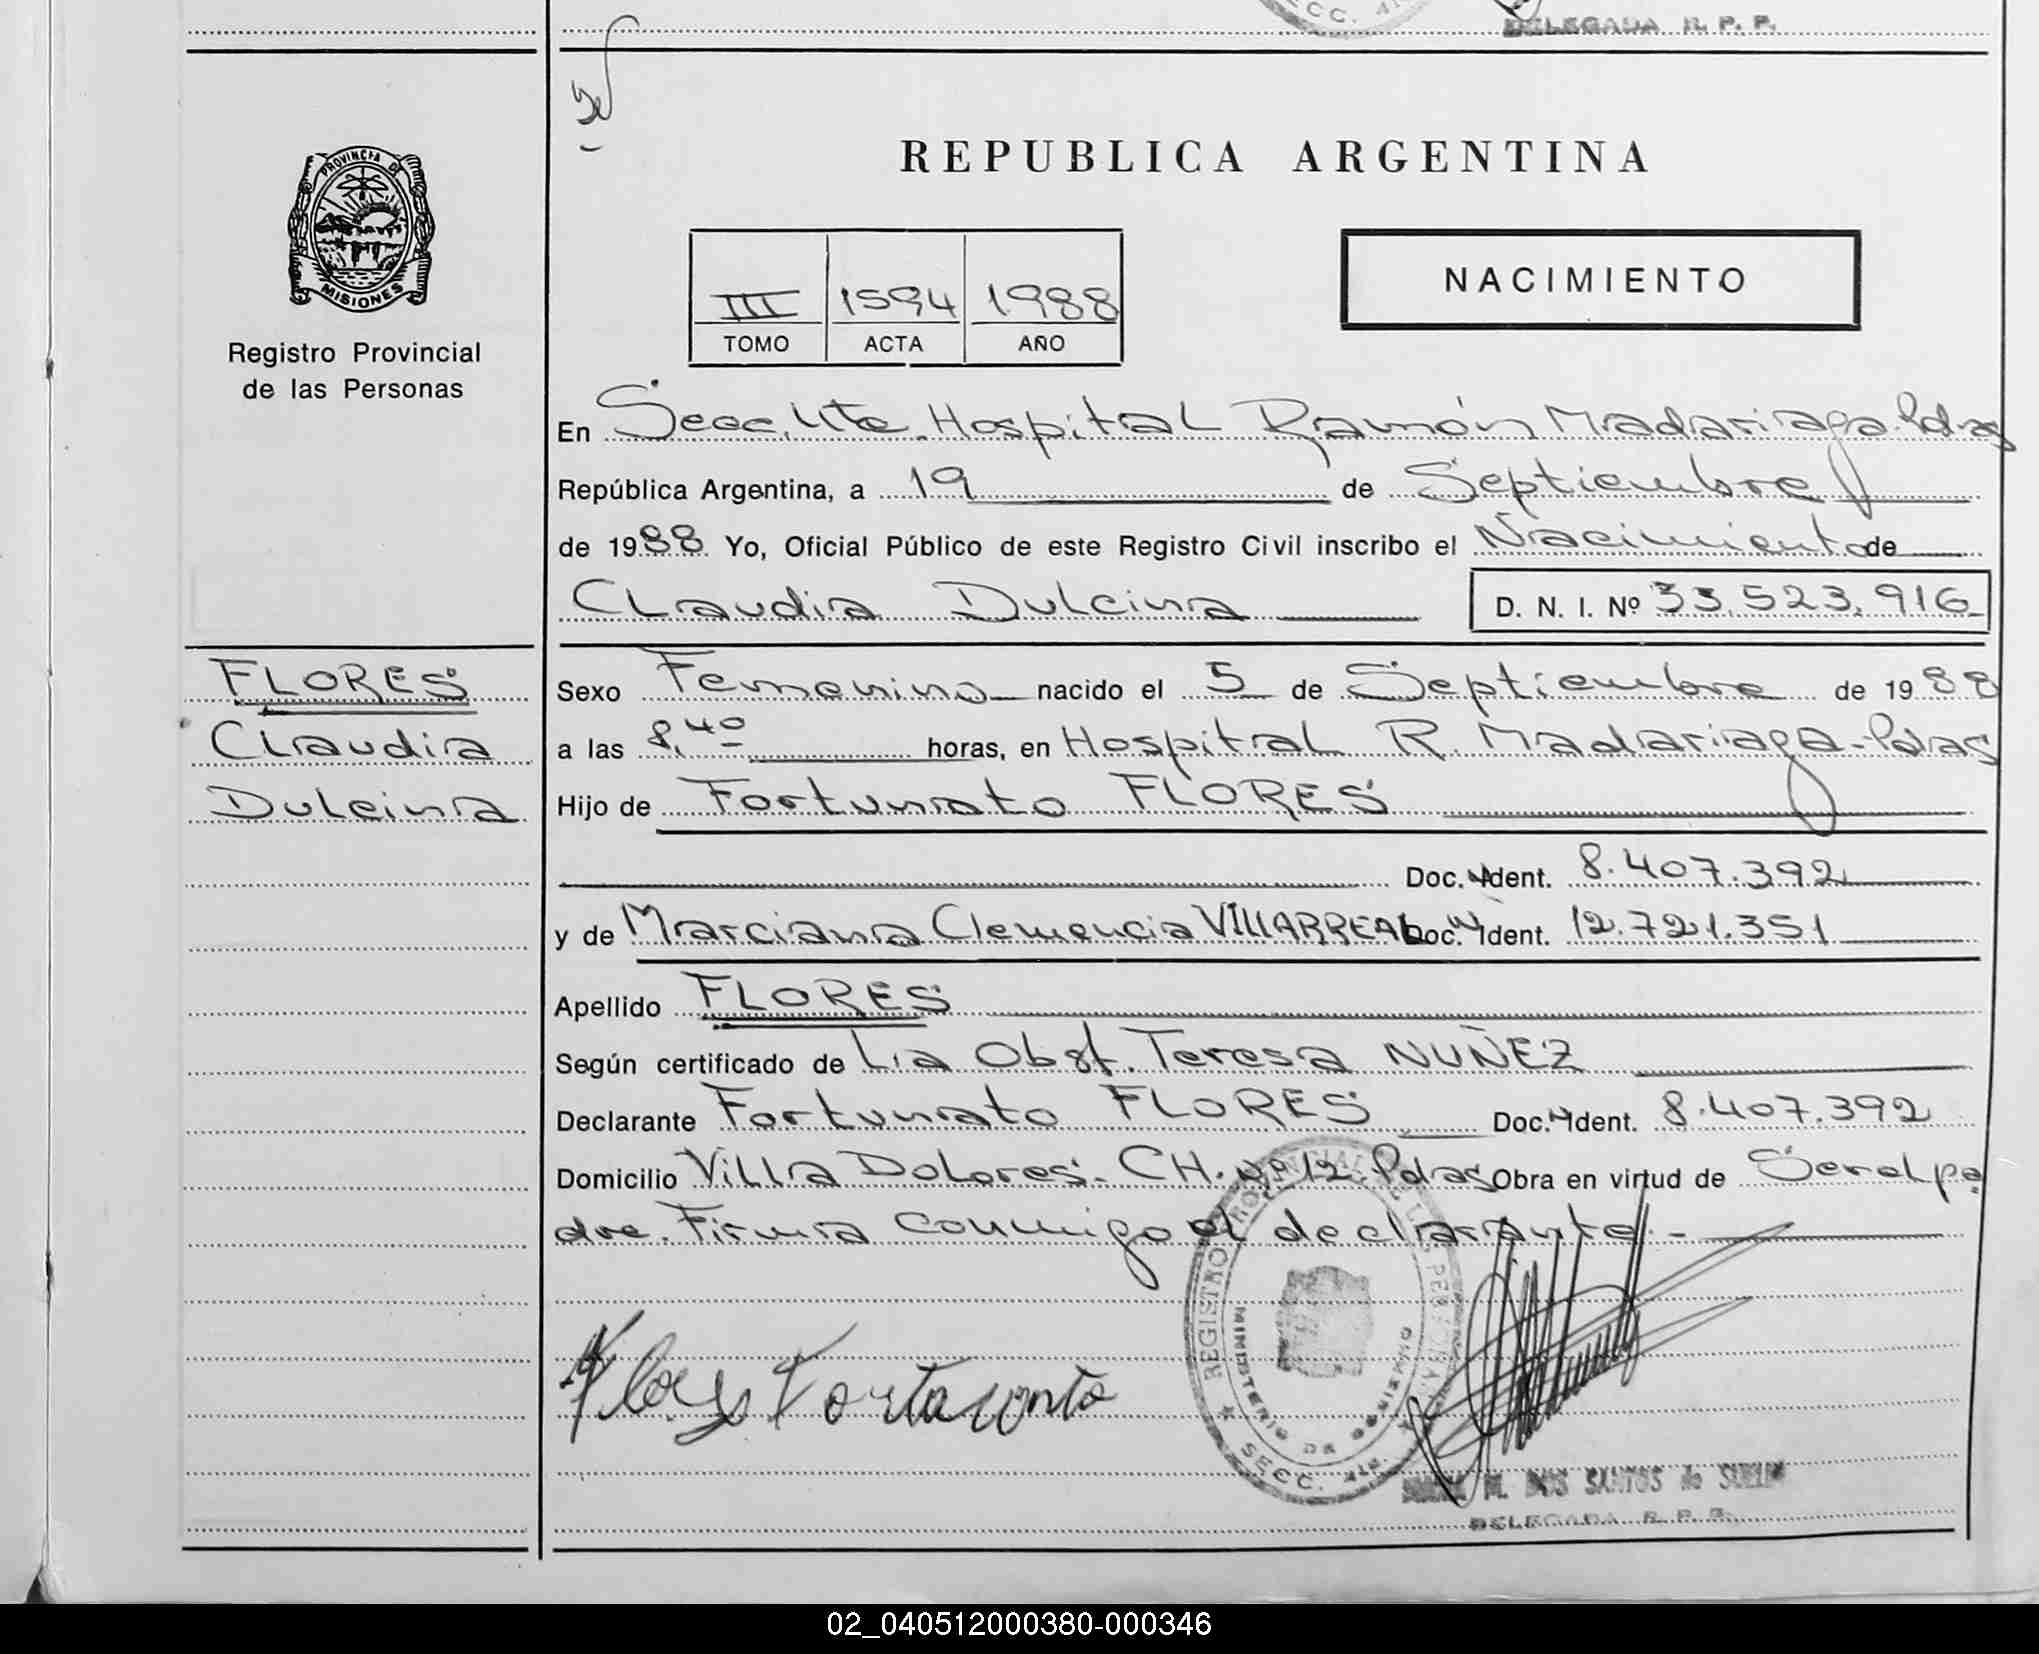 SECC.
DELEGADA R. P. P.
REPUBLICA ARGENTINA
PROVINCIA DE
MISIONES
Registro Provincial
de las Personas
III 1594 1988
TOMO ACTA AÑO
NACIMIENTO
En Secc. 4ta. Hospital Ramón Madariaga. Pdas
República Argentina, a 19 de Septiembre
de 1988 Yo, Oficial Público de este Registro Civil inscribo el Nacimiento de
Claudia Dulcina D. N. I. Nº 33.523.916
FLORES
Claudia
Dulcina
Sexo Femenino nacido el 5 de Septiembre de 1988
a las 8,40 horas, en Hospital R. Madariaga - Pdas
Hijo de Fortunato FLORES
Doc. Ident. 8.407.392
y de Marciana Clemencia VILLARREAL Doc. Ident. 12.721.351
Apellido FLORES
Según certificado de Lia Obst. Teresa NUÑEZ
Declarante Fortunato FLORES Doc. Ident. 8.407.392
Domicilio Villa Dolores - CH. Nº 12. Pdas Obra en virtud de Ser el pa
dre. Firma conmigo el declarante. -
Flores Fortunato
REGISTRO PROVINCIAL DE LAS PERSONAS
MINISTERIO DE GOBIERNO
SECC. 4ta.
M. DOS SANTOS de
DELEGADA R. P. P.
02_040512000380-000346